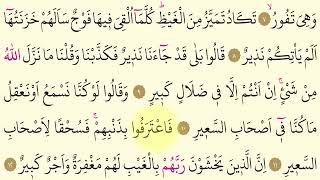 وَهِيَ تَفُورُ ﴿٧﴾ تَكَادُ تَمَيَّزُ مِنَ الْغَيْظِۜ كُلَّمَٓا اُلْقِيَ فِيهَا فَوْجٌ سَاَلَهُمْ خَزَنَتُهَٓا
اَلَمْ يَأْتِكُمْ نَذِيرٌ ﴿٨﴾ قَالُوا بَلٰى قَدْ جَٓاءَنَا نَذِيرٌ فَكَذَّبْنَا وَقُلْنَا مَا نَزَّلَ اللّٰهُ
مِنْ شَيْءٍۚ اِنْ اَنْتُمْ اِلَّا فِي ضَلَالٍ كَبِيرٍ ﴿٩﴾ وَقَالُوا لَوْ كُنَّا نَسْمَعُ اَوْ نَعْقِلُ
مَا كُنَّا فِٓي اَصْحَابِ السَّعِيرِ ﴿١٠﴾ فَاعْتَرَفُوا بِذَنْبِهِمْۚ فَسُحْقًا لِاَصْحَابِ
السَّعِيرِ ﴿١١﴾ اِنَّ الَّذِينَ يَخْشَوْنَ رَبَّهُمْ بِالْغَيْبِ لَهُمْ مَغْفِرَةٌ وَاَجْرٌ كَبِيرٌ ﴿١٢﴾